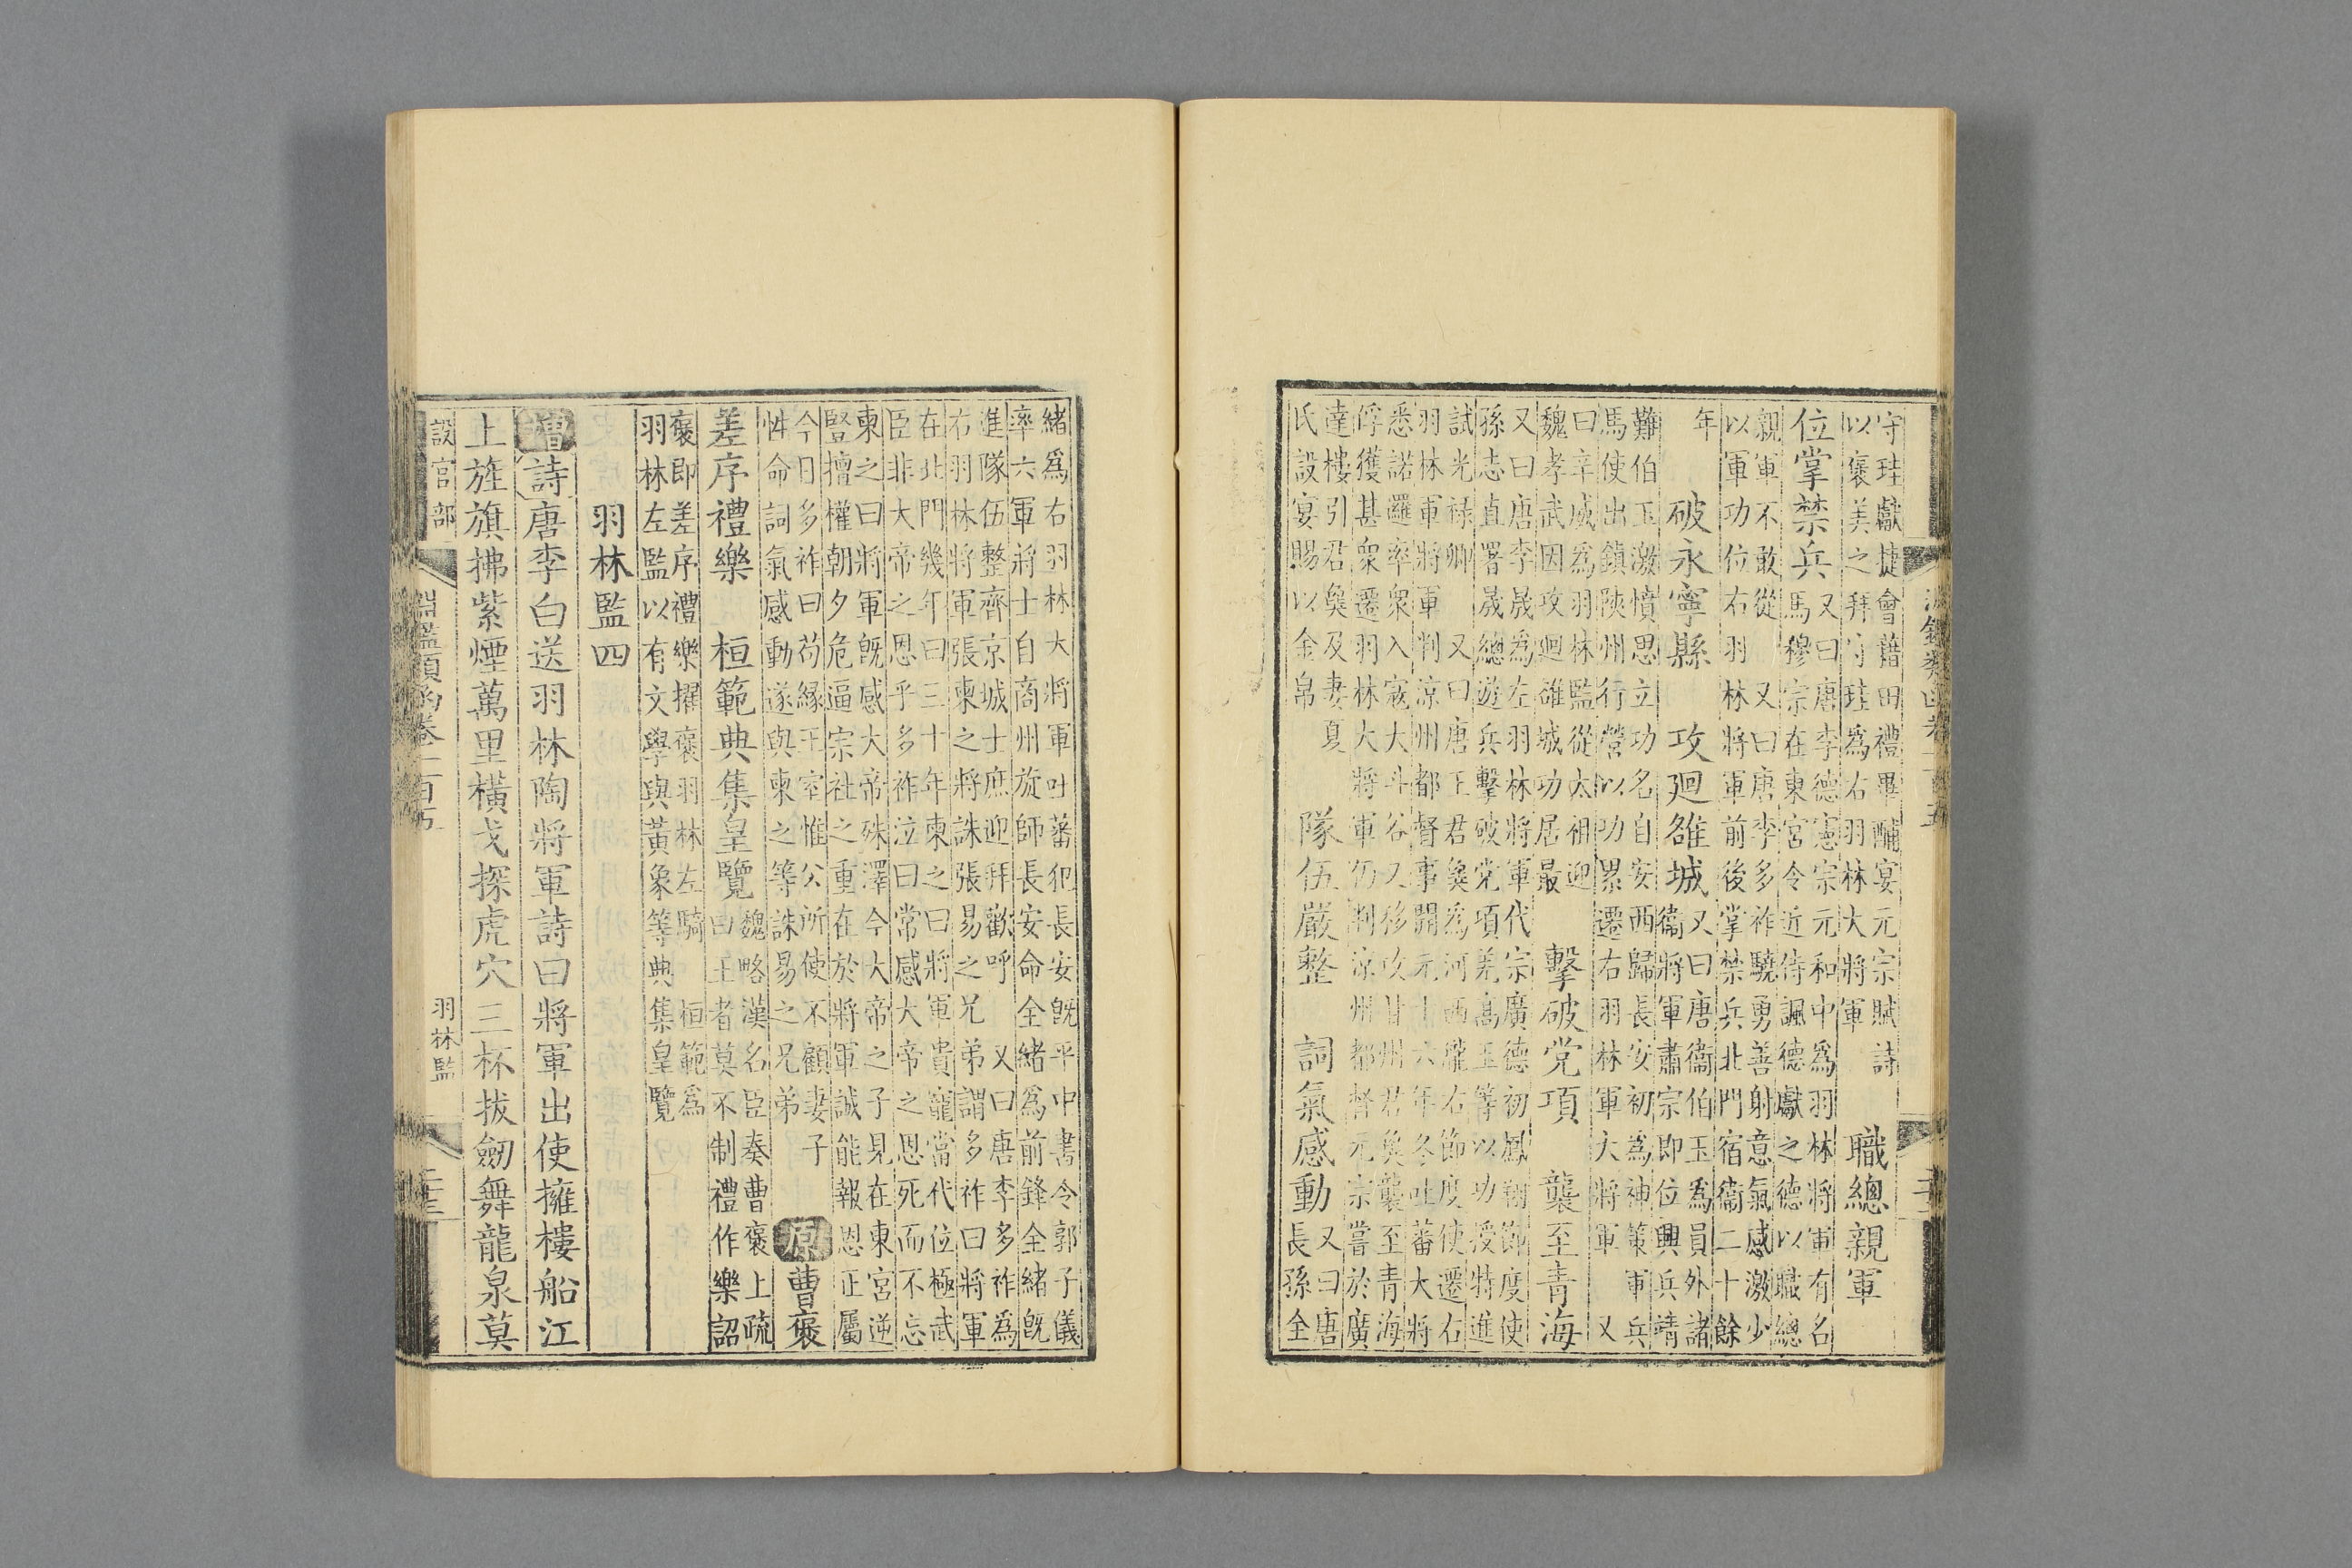 守珪獻捷會籍田禮畢酺宴元宗賦詩
以褒美之拜守珪為右羽林大將軍
職總親軍
又曰唐李德憲宗元和中為羽林將軍有名
穆宗在東宮令近侍諷德獻之德以職總
位掌禁兵馬
親軍不敢從
又曰唐李多祚驍勇善射意氣感激少
以軍功位右羽林將軍前後掌禁兵北門宿衞二十餘
年
破永寧縣
攻廻雒城
又曰唐衞伯玉為員外諸
衞將軍肅宗即位興兵靖
難伯玉激憤思立功名自安西歸長安初為神策軍兵
馬使出鎮陝州行營以功累遷右羽林軍大將軍
又
曰辛威為羽林監從太祖迎
魏孝武因攻廻雒城功居最
擊破党項
襲至青海
又曰唐李晟為左羽林將軍代宗廣德初鳳翔節度使
孫志直署晟總遊兵擊破党項羌高玉等以功授特進
試光祿卿
又曰唐王君㚟為河西隴右節度使遷右
羽林軍將軍判涼州都督事開元十六年冬吐蕃大將
悉諾邏率衆入寇大斗谷又移攻甘州君㚟襲至青海
俘獲甚衆遷羽林大將軍仍判涼州都督元宗嘗於廣
達樓引君㚟及妻夏
氏設宴賜以金帛
隊伍嚴整
詞氣感動
又曰唐
長孫全
緒為右羽林大將軍吐蕃犯長安既平中書令郭子儀
率六軍將士自商州旋師長安命全緒為前鋒全緒既
進隊伍整齊京城士庶迎拜歡呼
又曰唐李多祚為
右羽林將軍張柬之將誅張易之兄弟謂多祚曰將軍
在北門幾年曰三十年柬之曰將軍貴寵當代位極武
臣非大帝之恩乎多祚泣曰常感大帝之恩死而不忘
柬之曰將軍既感大帝殊澤今大帝之子見在東宮逆
豎擅權朝夕危逼宗社之重在於將軍誠能報恩正屬
今日多祚曰苟緣王室惟公所使不顧妻子
性命詞氣感動遂與柬之等誅易之兄弟
原
曹褒
差序禮樂
桓範典集皇覽
魏略漢名臣奏曹褒上疏
曰王者莫不制禮作樂詔
褒即差序禮樂擢褒羽林左騎
桓範為
羽林左監以有文學與黃象等典集皇覽
羽林監四
增
詩
唐李白送羽林陶將軍詩曰將軍出使擁樓船江
上旌旗拂紫煙萬里橫戈探虎穴三杯拔劒舞龍泉莫
設官部
淵鑑類函卷一百五
羽林監